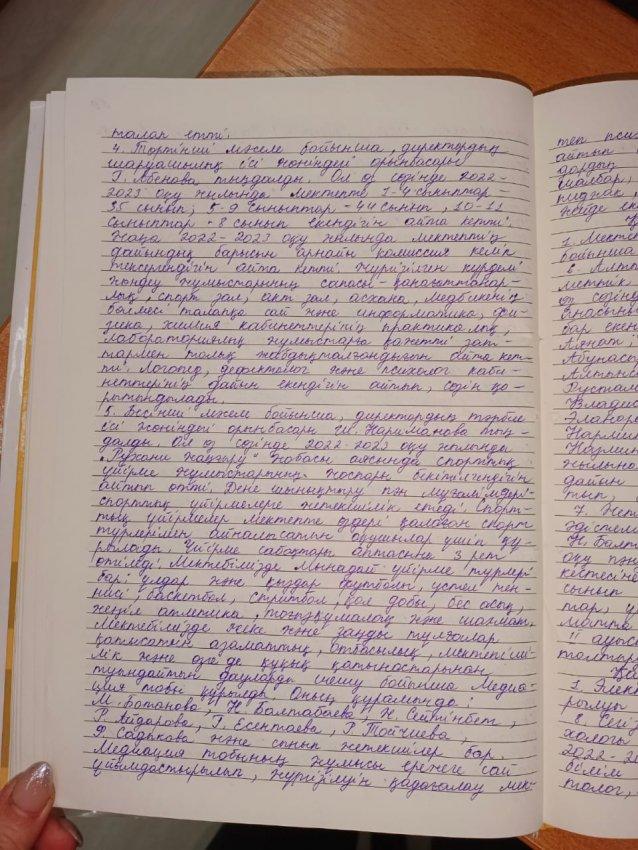 талап етті.
4. Төртінші мәселе бойынша, директордың
шаруашылық ісі жөніндегі орынбасары
Г. Абенова тыңдалды. Ол өз сөзінде 2022-
2023 оқу жылында мектепте 1-4 сыныптар -
35 сынып; 5-9 сыныптар - 44 сынып, 10-11
сыныптар - 8 сынып екендігін айта кетті.
Жаңа 2022-2023 оқу жылында мектептің
дайындық барысын арнайы комиссия келіп
тексергендігін айта кетті. Жүргізілген күрделі
жөндеу жұмыстарының сапасы - қанағаттанар-
лық, спорт зал, акт зал, асхана, медбикенің
бөлмесі талапқа сай және информатика, фи-
зика, химия кабинеттерінің практикалық,
лабораториялық жұмыстары қажетті зат-
тармен толық жабдықталғандығын айта кет-
ті. Логопед, дефектолог және психолог каби-
неттерінің дайын екендігін айтып, сөзін қо-
рытындылады.
5. Бесінші мәселе бойынша, директордың тәрбие
ісі жөніндегі орынбасары Ш. Нариманова тың-
далды. Ол өз сөзінде 2022-2023 оқу жылында
"Рухани жаңғыру" жобасы аясында спорттық
үйірме жұмыстарының жоспары бекітілгендігін
айтып өтті. Дене шынықтыру пән мұғалімдері-
спорттық үйірмелерге жетекшілік етеді. Спорт-
тық үйірмелер мектепте өздері қалаған спорт
түрлерімен айналысатын оқушылар үшін құ-
рылады. Үйірме сабақтары аптасына 3 рет
өтіледі. Мектебімізде мынадай үйірме түрлері
бар: ұлдар және қыздар футболы, үстел тен-
нисі баскетбол, стритбол, қол добы, бес асық,
жеңіл атлетика, тоғызқұмалақ және шахмат.
Мектебімізде жеке және заңды тұлғалар
қатысатын азаматтық, отбасылық, мектепішi-
лік және өзге де құқық қатынастарынан
туындайтын дауларды шешу бойынша Медиа-
ция тобы құрылды. Оның құрамында:
М. Ботанова, Н. Балтабаева, Н. Сейтінбет,
Р. Айдарова, Г. Есентаева, Г. Тойчиева,
Ф. Садыкова және сынып жетекшілер бар.
Медиация тобының жұмысы ережеге сай
ұйымдастырылып, жүргізілуін қадағалау мек-
теп
айтып
шалбар,
пиджак
1. Мектеп
бойынша
өз сөзінд
бар екен
Рустам
Владис
Эланор
жылына
дайын
тып,
7.
Н. Балт
оқу
сынып
1.
рылуы
8. Сей
2022-20
білім